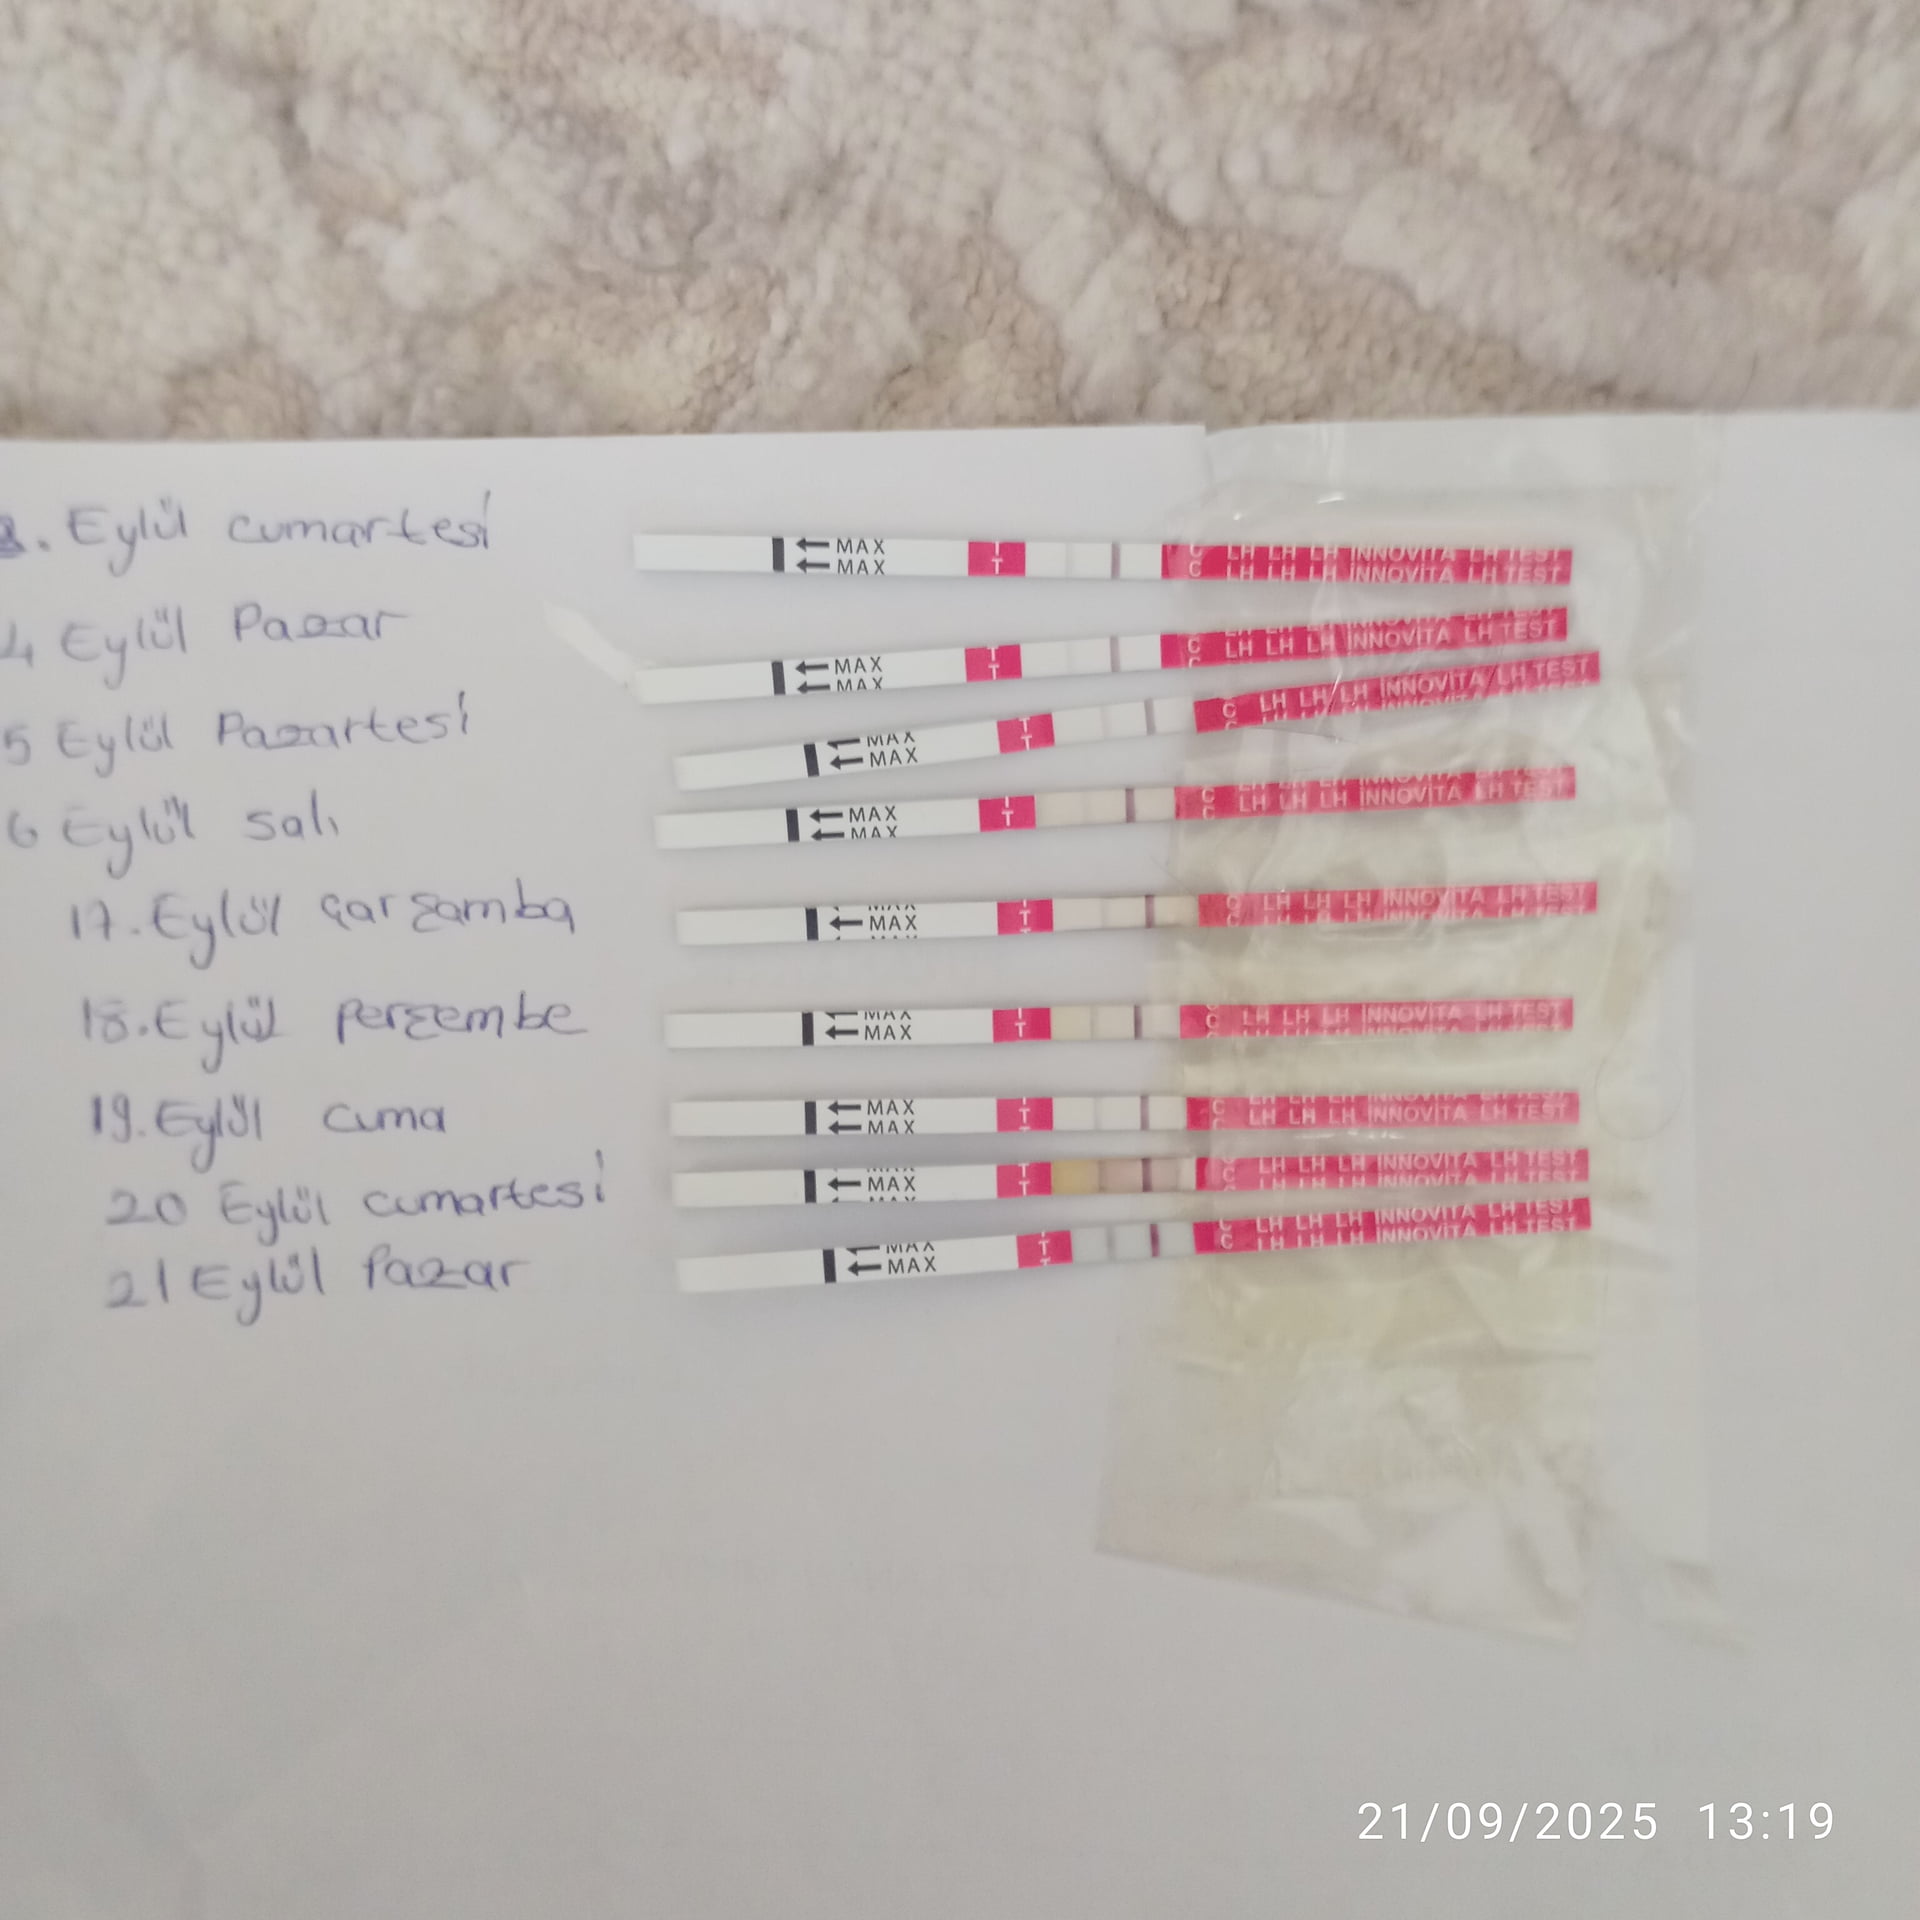 3. Eylül cumartesi
4 Eylül Pazar
5 Eylül Pazartesi
6 Eylül salı
17. Eylül çarşamba
18. Eylül perşembe
19. Eylül cuma
20 Eylül cumartesi
21 Eylül Pazar
MAX T C LH LH LH INNOVITA LH TEST
MAX T C LH LH LH INNOVITA LH TEST
MAX T C LH LH LH INNOVITA LH TEST
MAX T C LH LH LH INNOVITA LH TEST
MAX T C LH LH LH INNOVITA LH TEST
MAX T C LH LH LH INNOVITA LH TEST
MAX T C LH LH LH INNOVITA LH TEST
MAX T C LH LH LH INNOVITA LH TEST
MAX T C LH LH LH INNOVITA LH TEST
21/09/2025 13:19